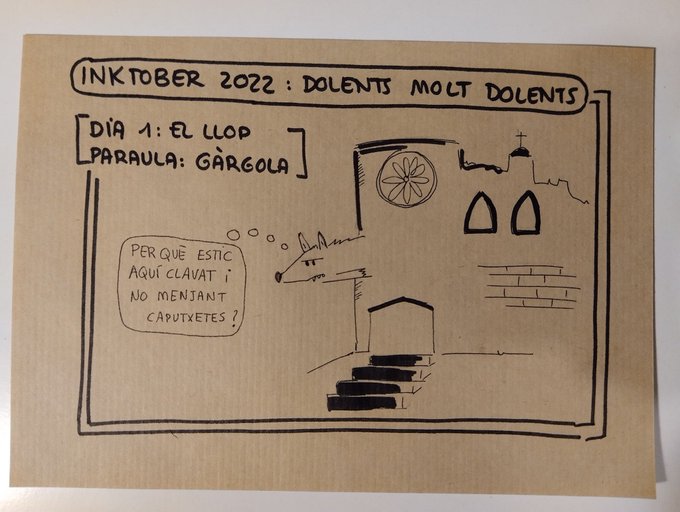 INKTOBER 2022 : DOLENTS MOLT DOLENTS
DIA 1: EL LLOP
PARAULA: GÀRGOLA
PER QUÈ ESTIC
AQUÍ CLAVAT I
NO MENJANT
CAPUTXETES?